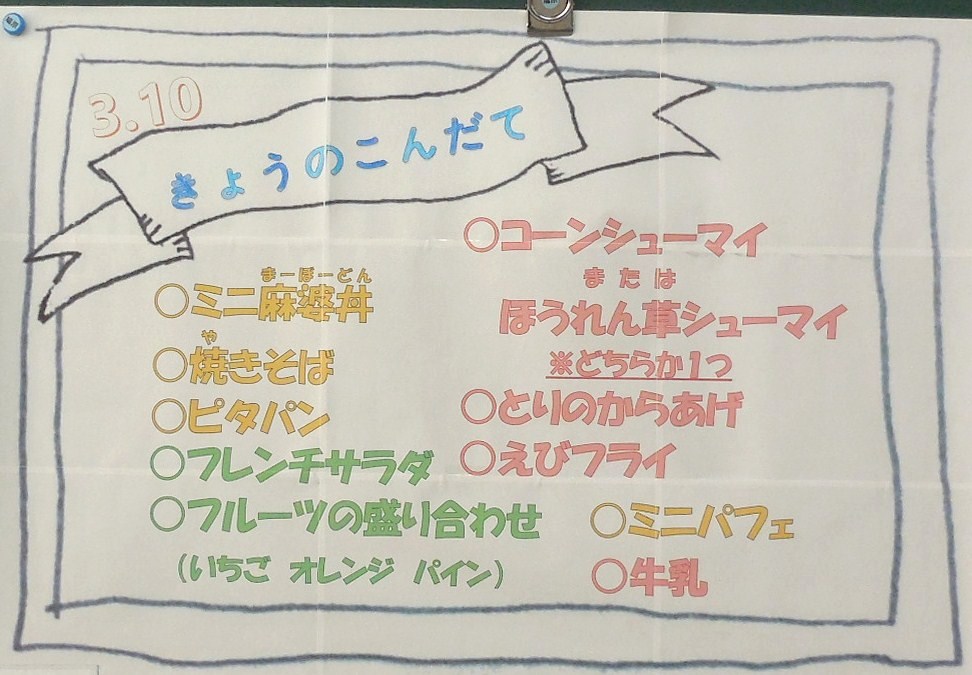 3.10
きょうのこんだて
まーぼーどん
○ミニ麻婆丼
や
○焼きそば
○ピタパン
○フレンチサラダ
○フルーツの盛り合わせ
(いちご オレンジ パイン)
○コーンシューマイ
または
ほうれん草シューマイ
※どちらか1つ
○とりのからあげ
○えびフライ
○ミニパフェ
○牛乳